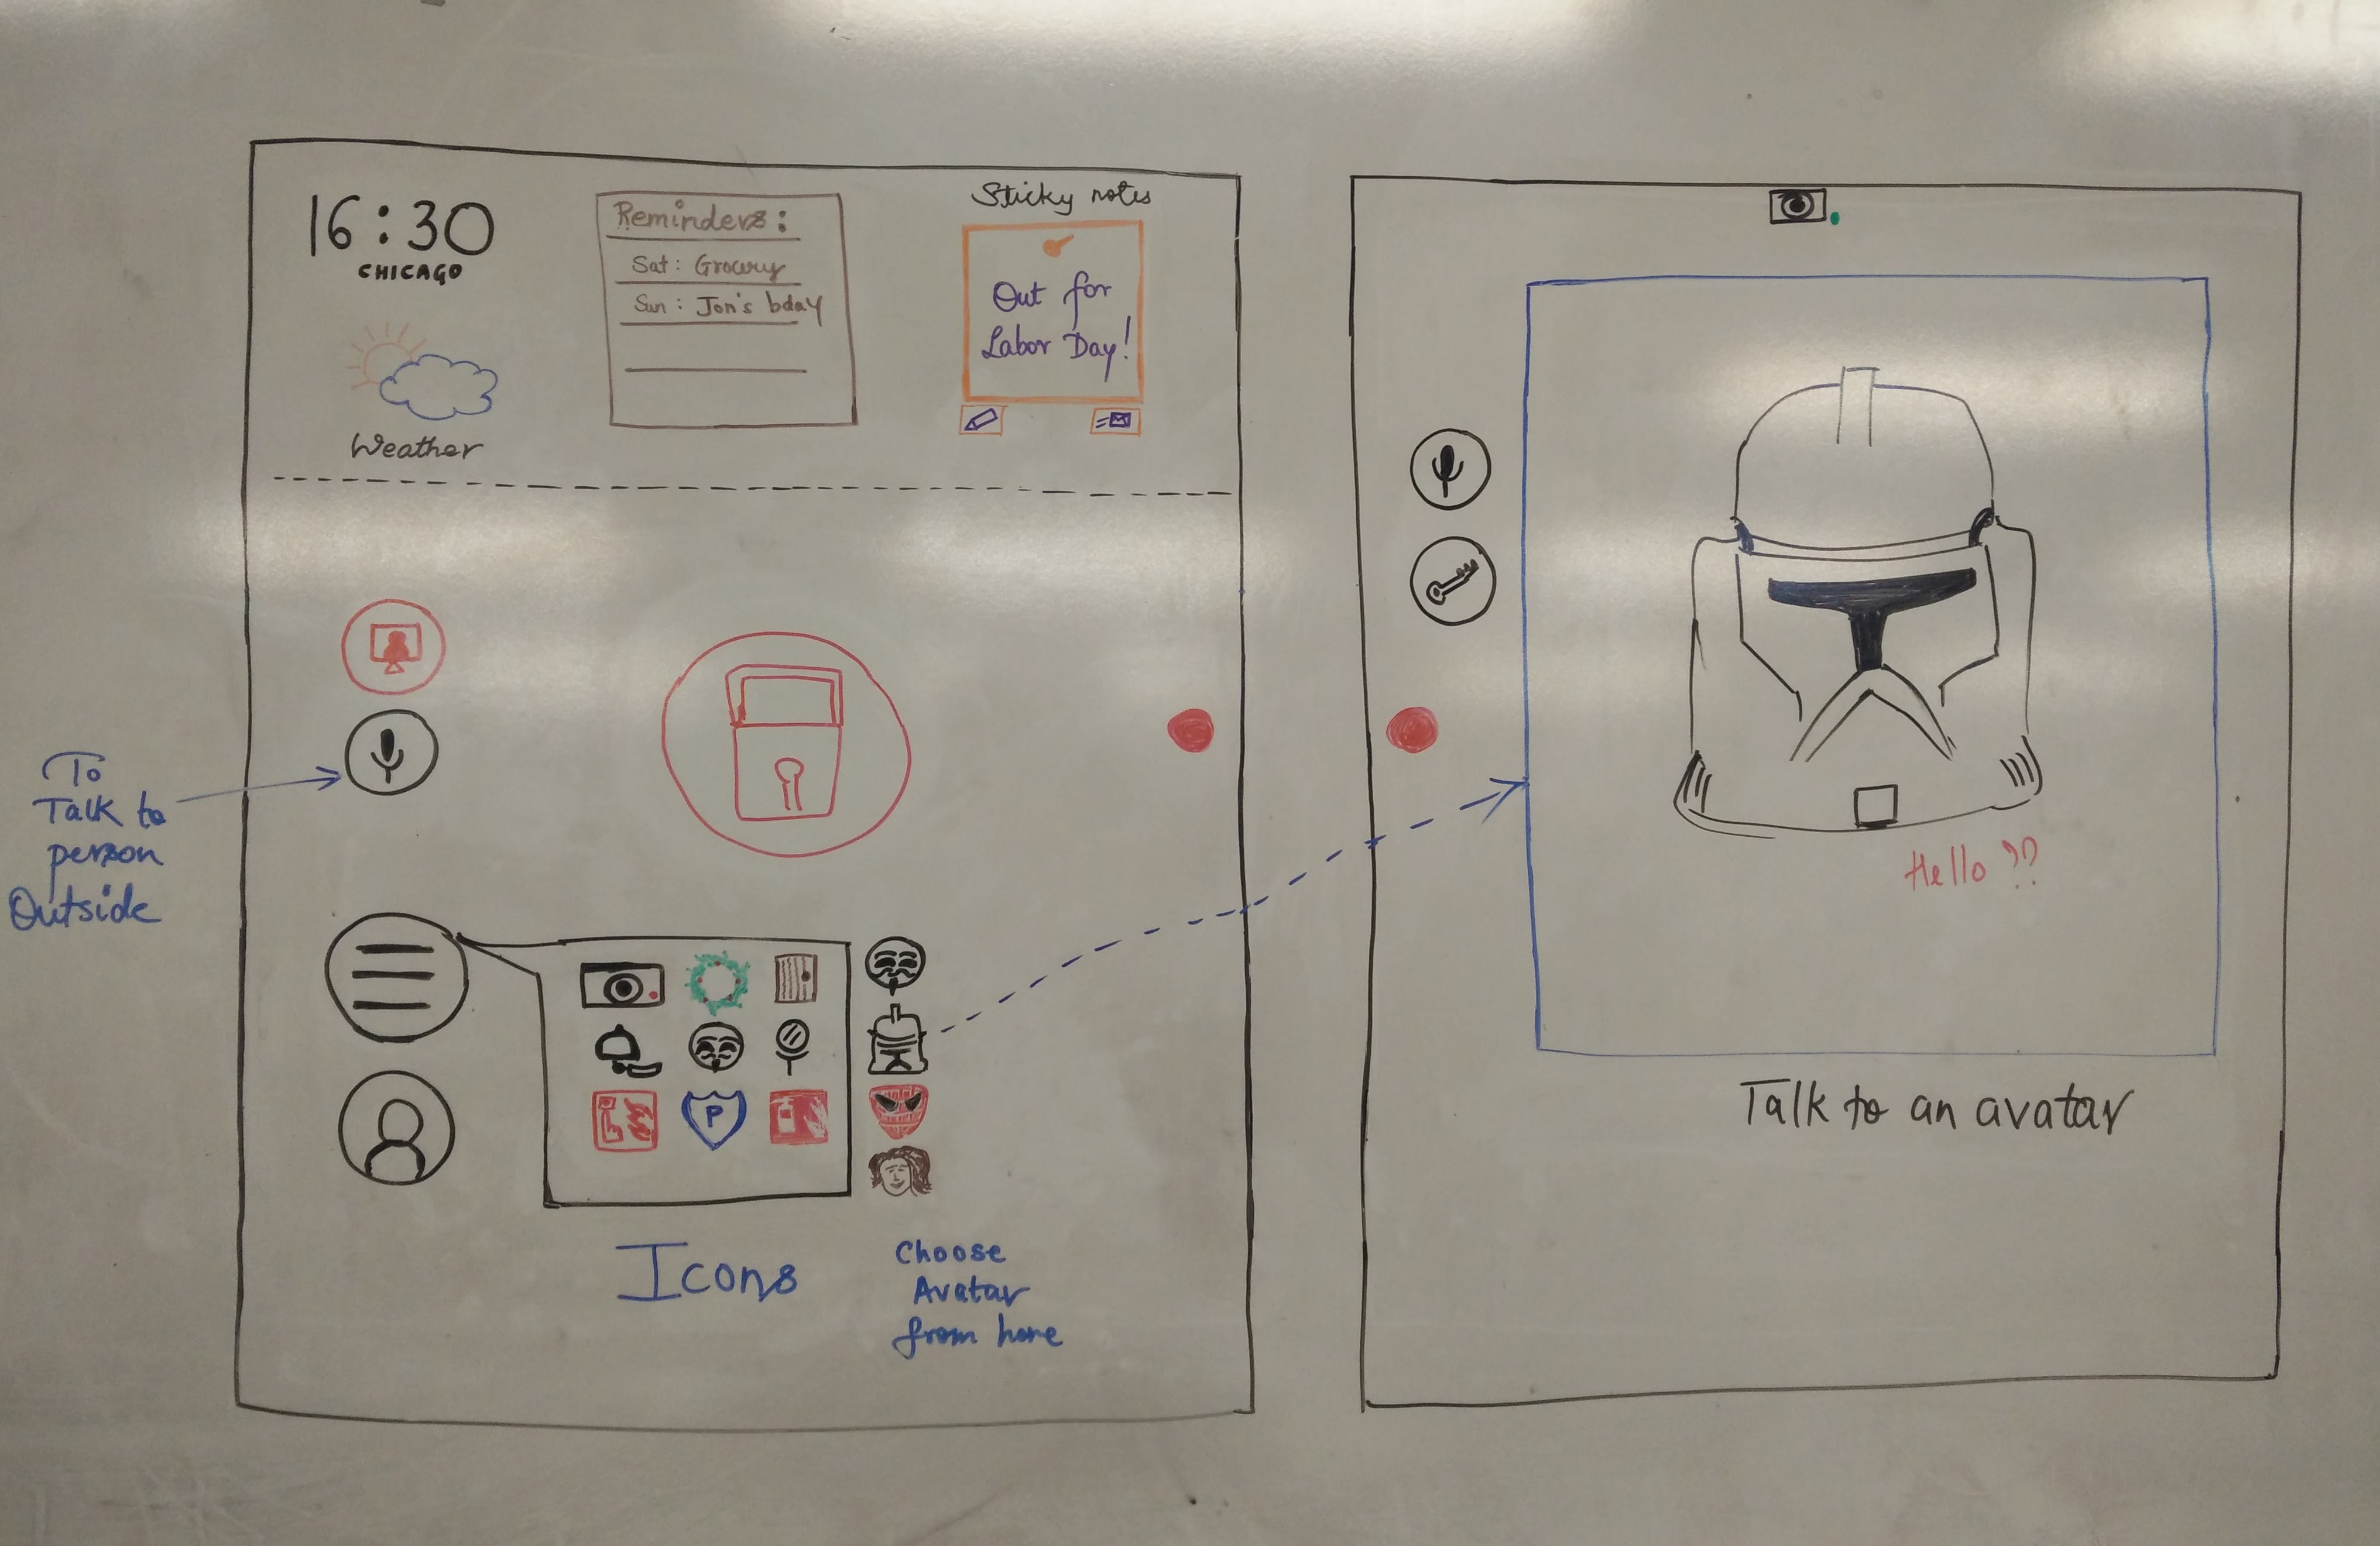 16:30
CHICAGO
Weather
Reminders:
Sat: Grocery
Sun: Jon's bday
Sticky notes
Out for
Labor Day!
To
Talk to
person
Outside
P
Icons
Choose
Avatar
from here
Hello??
Talk to an avatar